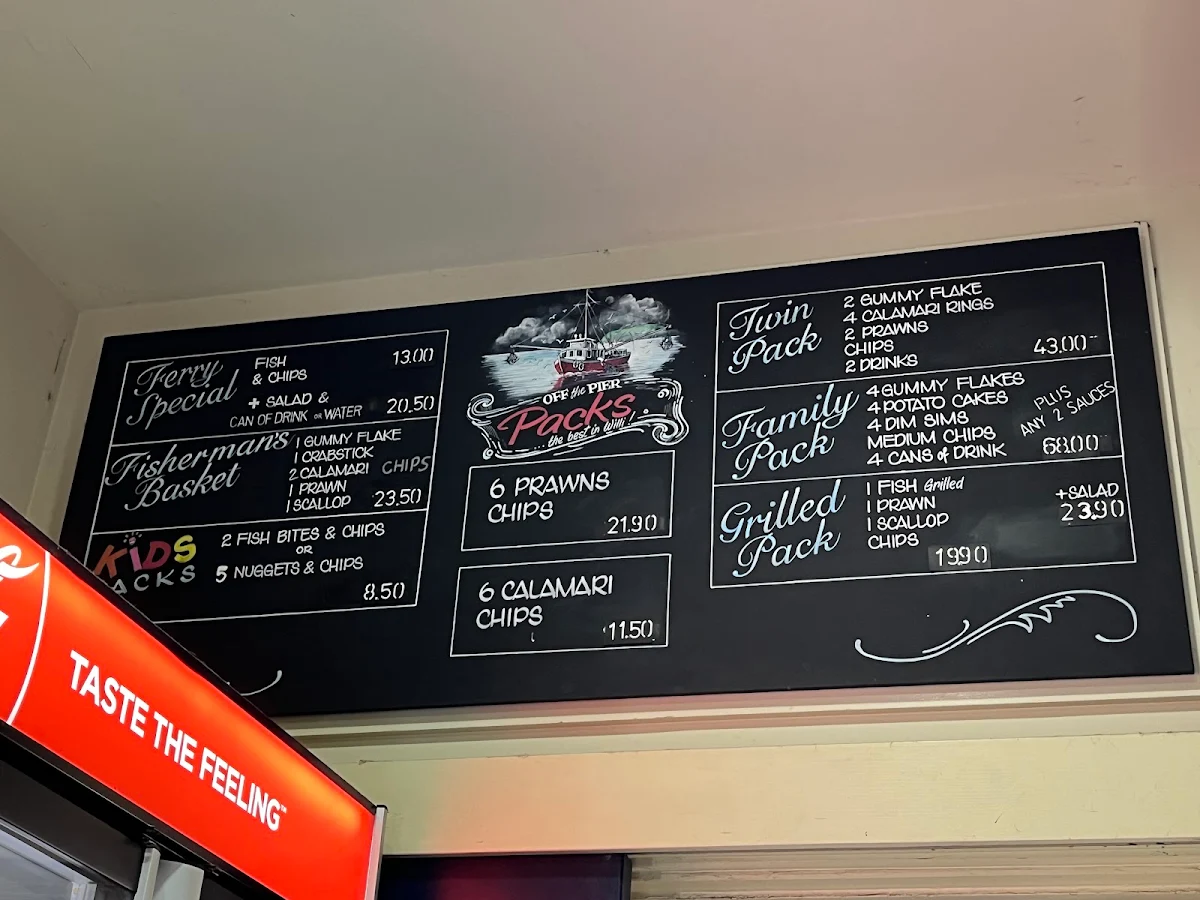 Ferry
Special
FISH
& CHIPS
13.00
+ SALAD &
CAN OF DRINK OR WATER
20.50
Fisherman's
Basket
1 GUMMY FLAKE
1 CRABSTICK
2 CALAMARI
CHIPS
1 PRAWN
1 SCALLOP
23.50
KIDS
ACKS
2 FISH BITES & CHIPS
OR
5 NUGGETS & CHIPS
8.50
OFF the PIER
Packs
... the best in Willi!
6 PRAWNS
CHIPS
21.90
6 CALAMARI
CHIPS
11.50
Twin
Pack
2 GUMMY FLAKE
4 CALAMARI RINGS
2 PRAWNS
CHIPS
2 DRINKS
43.00
Family
Pack
4 GUMMY FLAKES
4 POTATO CAKES
4 DIM SIMS
MEDIUM CHIPS
4 CANS of DRINK
PLUS
ANY 2 SAUCES
68.00
Grilled
Pack
1 FISH Grilled
1 PRAWN
1 SCALLOP
CHIPS
19.90
+SALAD
23.90
TASTE THE FEELING™